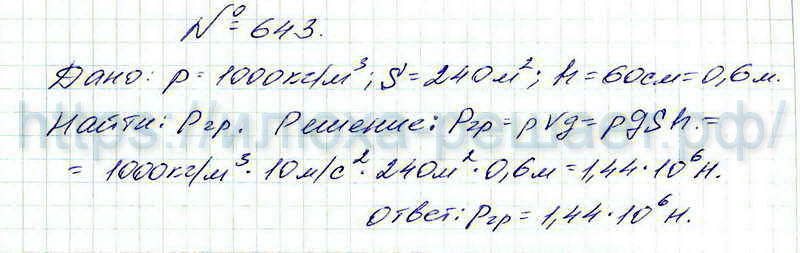 № 643.
Дано: ρ = 1000кг/м³; S = 240м²; h = 60см = 0,6м.
Найти: Pгр. Решение: Pгр = ρVg = ρgSh. =
= 1000кг/м³ · 10м/с² · 240м² · 0,6м = 1,44 · 10⁶ Н.
Ответ: Pгр = 1,44 · 10⁶ Н.
https://илюха-решает.рф/